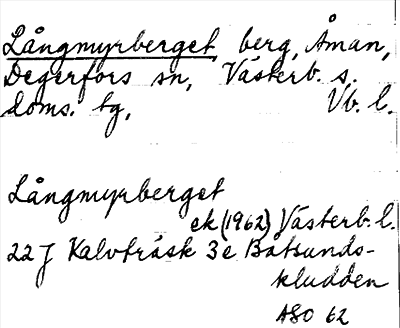 Långmyrberget, berg, Åman,
Degerfors sn, Västerb. s.
doms. tg, Vb. l.
Långmyrberget
ek (1962) Västerb. l.
22 J Kalvträsk 3e Båtsunds-
kludden
ASO 62